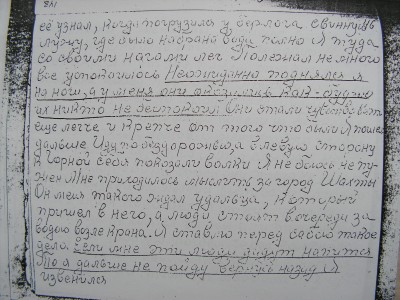 её узнал, когда погрузился у берлога свинную
лужу, где было набрано воды полно Я туда
со своими ногами лег Полежал немного
все успокоилось Неожиданно поднялся я
на ноги, а у меня они
их никто не беспокоил Они стали чувствовать
еще легче и крепче от того что были Я пошел
дальше Иду по бездорожью, а в левую сторону
к горной себя показали волки Я не боюсь
Мне приходилось мыслить за город Шахты
Он меня такого ждал удальца, который
пришел в него, а люди стоят в очереди за
водою возле крана, Я ставлю перед собою такое
дело. Если мне эти люди дадут напиться
то я дальше не пойду вернусь назад Я
извенился